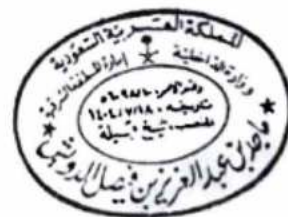 المملكة العربية السعودية
وزارة الداخلية
إمارة المنطقة الشرقية
تاريخه ١٤٠٤/٧/١٨
ماجد بن عبد العزيز بن فيصل الدويش